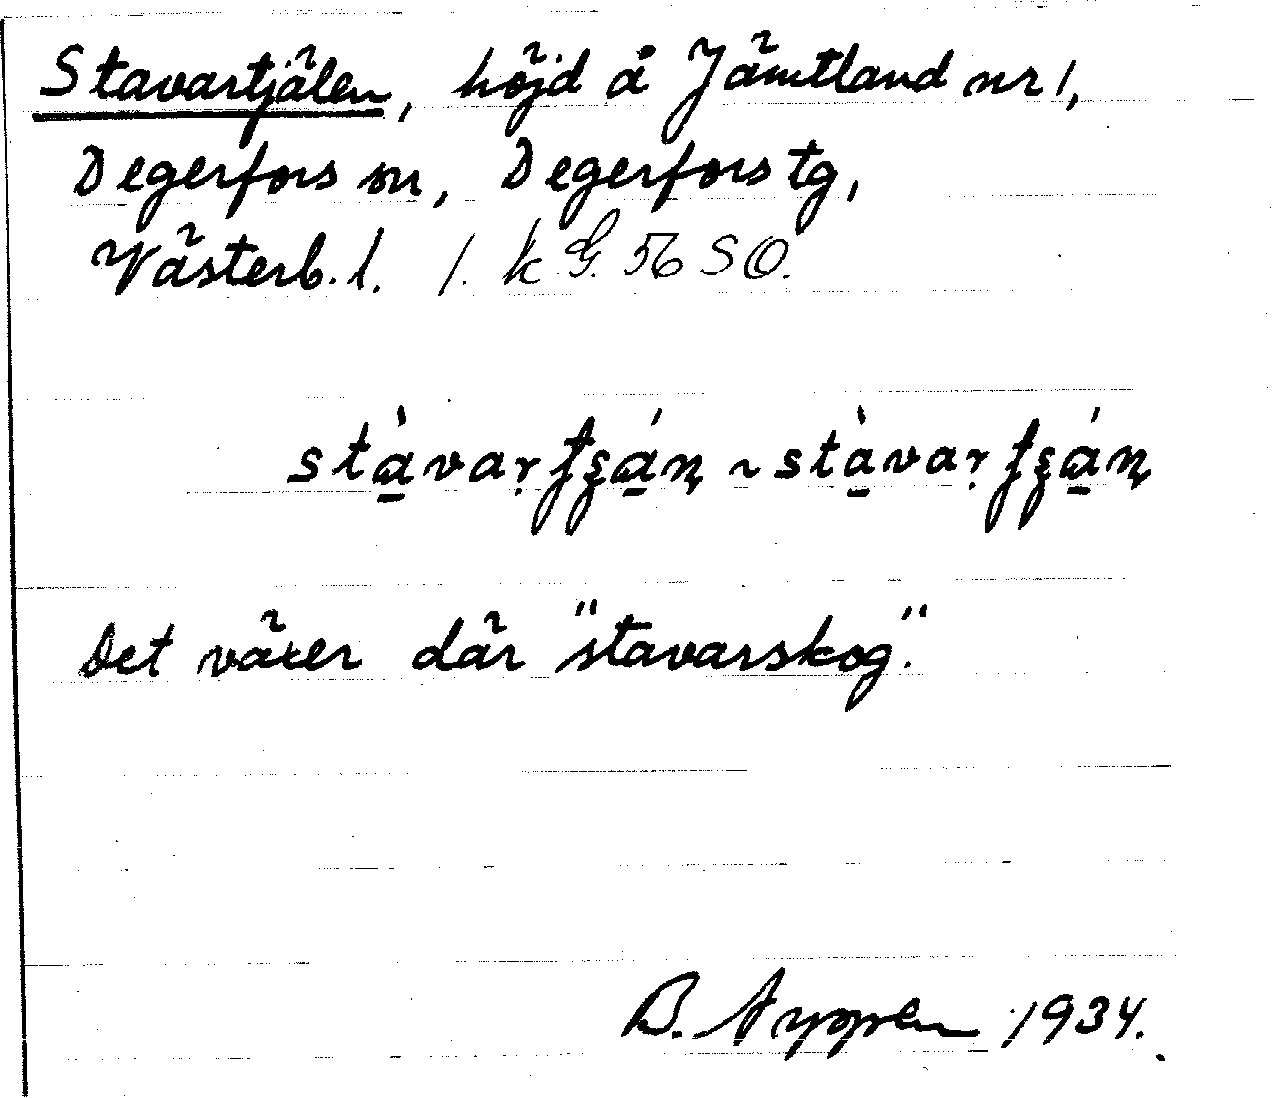 Stavartjälen, höjd å Jämtland nr 1,
Degerfors sn, Degerfors tg,
Västerb. l. 1. k G. 56 SO.
stàvaṛ tʂán ~ stàvaṛ tʂán
Det växer där "stavarskog".
B. 1934.